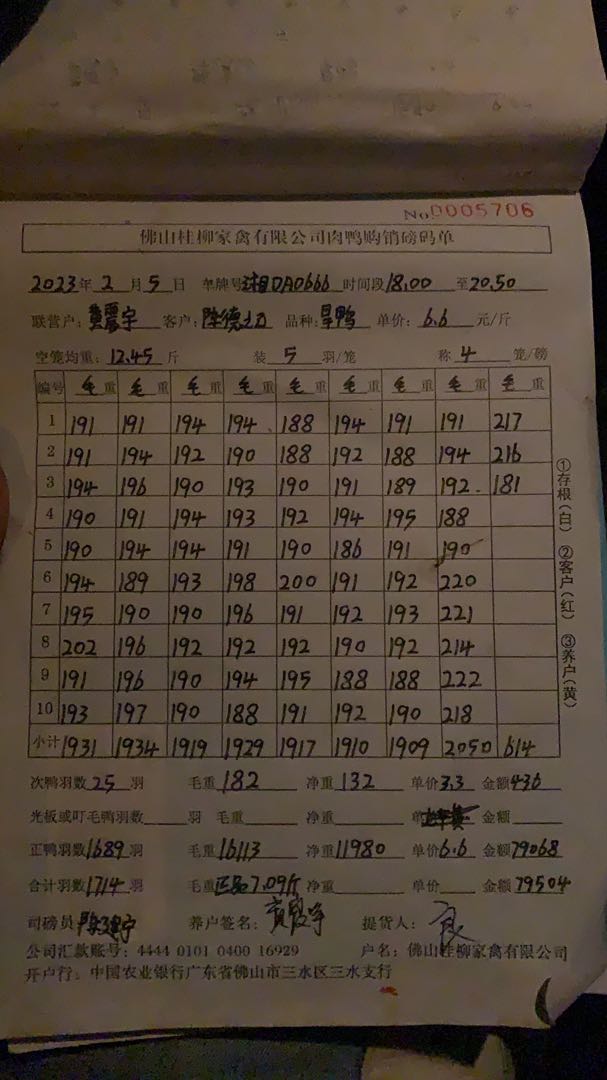 No 0005706
佛山桂柳家禽有限公司肉鸭购销磅码单
2023年2月5日 车牌号湘DA0666 时间段18.00至20.50
联营户:黄震宇 客户:陈德 品种:旱鸭 单价:6.6元/斤
空笼均重:12.45斤 装5羽/笼 称4笼/磅
编号 毛重 毛重 毛重 毛重 毛重 毛重 毛重 毛重 毛重
1 191 191 194 194 188 194 191 191 217
2 191 194 192 190 188 192 188 194 216
3 194 196 190 193 190 191 189 192 181
4 190 191 194 193 192 194 195 188
5 190 194 194 191 190 186 191 190
6 194 189 193 198 200 191 192 220
7 195 190 190 196 191 192 193 221
8 202 196 192 192 192 190 192 214
9 191 196 190 194 195 188 188 222
10 193 197 190 188 191 192 190 218
小计 1931 1934 1919 1929 1917 1910 1909 2050 614
①存根(白) ②客户(红) ③养户(黄)
次鸭羽数25羽 毛重182 净重132 单价3.3 金额436
光板或叮毛鸭羽数 羽 毛重 净重 金额
正鸭羽数1689羽 毛重16113 净重11980 单价6.6 金额79068
合计羽数1714羽 毛重正品7.09斤 净重 单价 金额79504
司磅员 养户签名:黄震宇 提货人:
公司汇款账号:4444 0101 0400 16929 户名:佛山桂柳家禽有限公司
开户行:中国农业银行广东省佛山市三水区三水支行